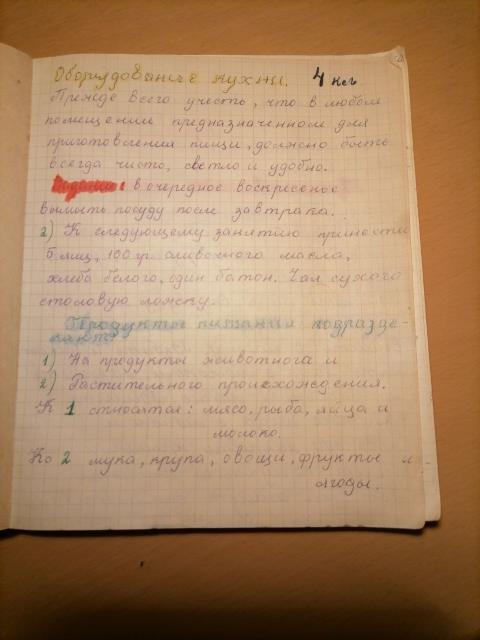 Оборудование кухни. 4 кл
Прежде всего учесть, что в любом
помещение предназначенном для
приготовления пищи, должно быть
всегда чисто, светло и удобно.
Задание: в очередное воскресенье
вымыть посуду после завтрака.
2) К следующему занятию принести
5 яиц, 100 гр. сливочного масла,
хлеба белого, один батон. Чая сухого
столовую ложку.
Продукты питания подразде-
ляют:
1) На продукты животного и
2) Растительного происхождения.
К 1 относятся: мясо, рыба, яйца и
молоко.
Ко 2 мука, крупа, овощи, фрукты и
ягоды.